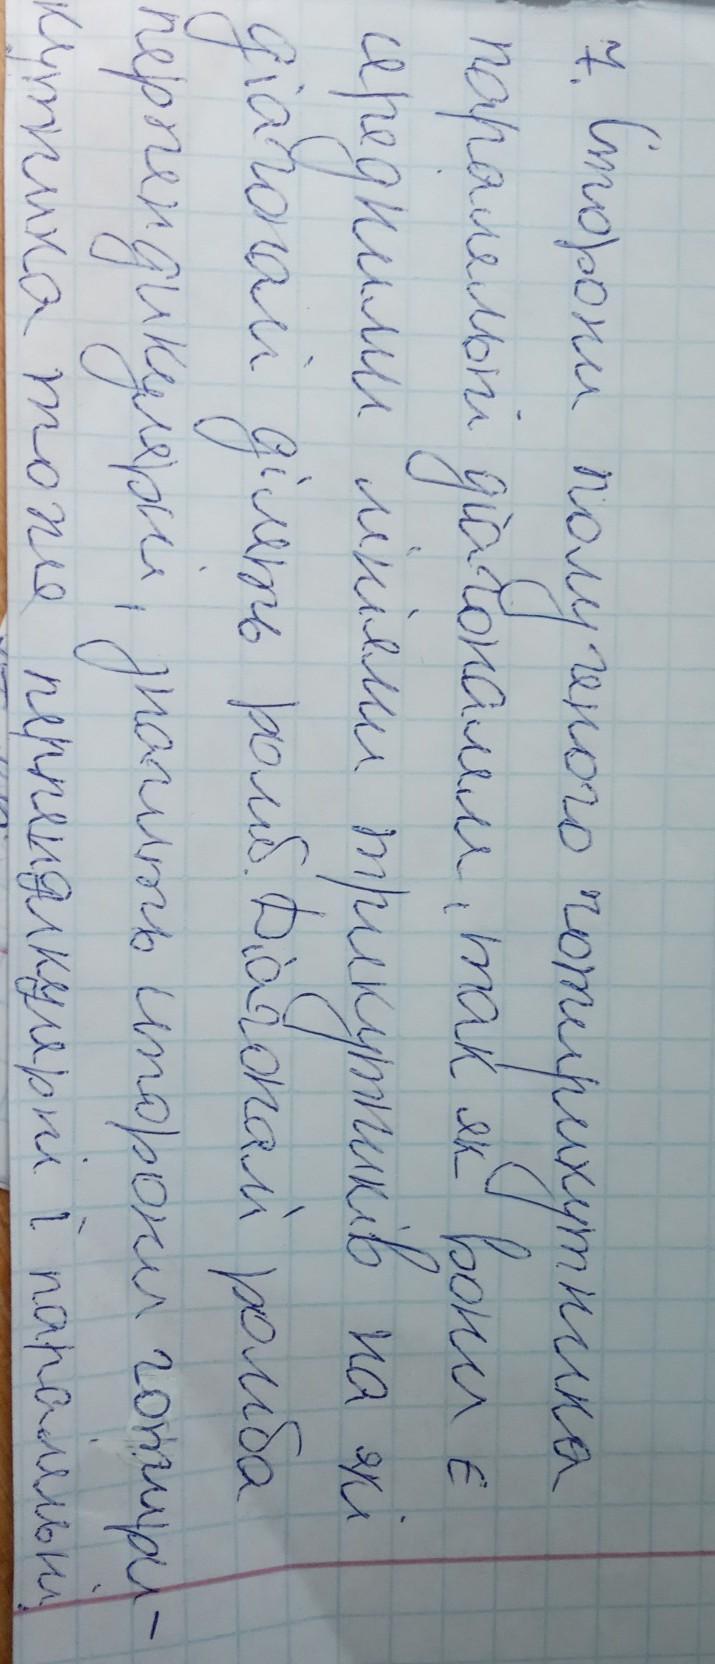 7. Сторони полученого чотирикутника
паралельні діагоналям, так як вони є
середніми лініями трикутників на які
діагоналі ділять ромб. Діагоналі ромба
перпендикулярні, значить сторони чотири-
кутника тоже перпендикулярні і паралельні.